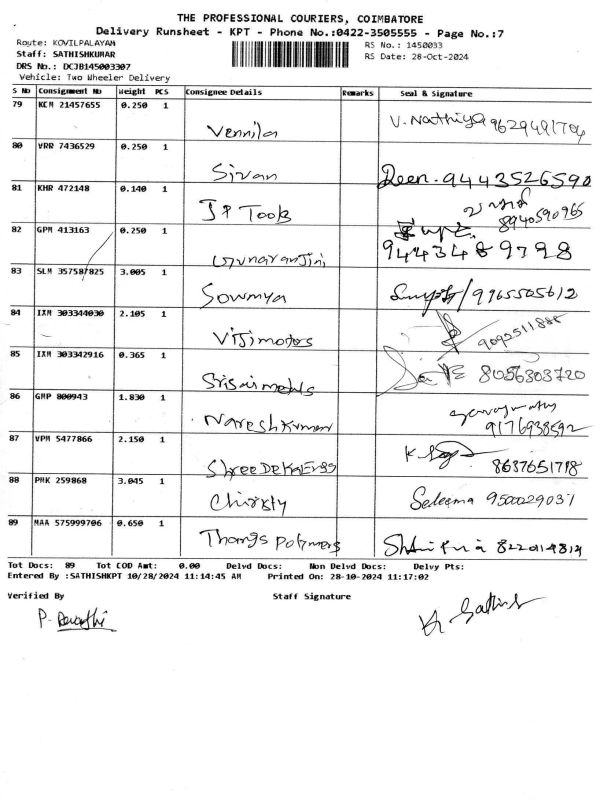 THE PROFESSIONAL COURIERS, COIMBATORE
Delivery Runsheet - KPT - Phone No.:0422-3505555 - Page No.:7
Route: KOVILPALAYAM RS No.: 1450033
Staff: SATHISHKUMAR RS Date: 28-Oct-2024
DRS No.: DCJB145003307
Vehicle: Two Wheeler Delivery
S No Consignment No Weight PCS Consignee Details Remarks Seal & Signature
79 KCM 21457655 0.250 1 Vennila V. Nathiya 9629491704
80 VRR 7436529 0.250 1 Sivan Deen. 9443526590
81 KHR 472148 0.140 1 JP Tools 8940590965
82 GPM 413163 0.250 1 Gunaranjini 9443489798
83 SLM 357587825 3.005 1 Sowmya 9965505612
84 IXM 303344030 2.105 1 Viji motors 9092511888
85 IXM 303342916 0.365 1 Srisai metals 8056303720
86 GMP 800943 1.830 1 Naresh Kumar 9176938592
87 VPM 5477866 2.150 1 Shree 8637651718
88 PMK 259868 3.045 1 Christy Seleema 9500029031
89 MAA 575999706 0.650 1 Thomas Polymers 8220148314
Tot Docs: 89 Tot COD Amt: 0.00 Delvd Docs: Non Delvd Docs: Delvy Pts:
Entered By :SATHISHKPT 10/28/2024 11:14:45 AM Printed On: 28-10-2024 11:17:02
Verified By Staff Signature
P. Revathi K. Sathish